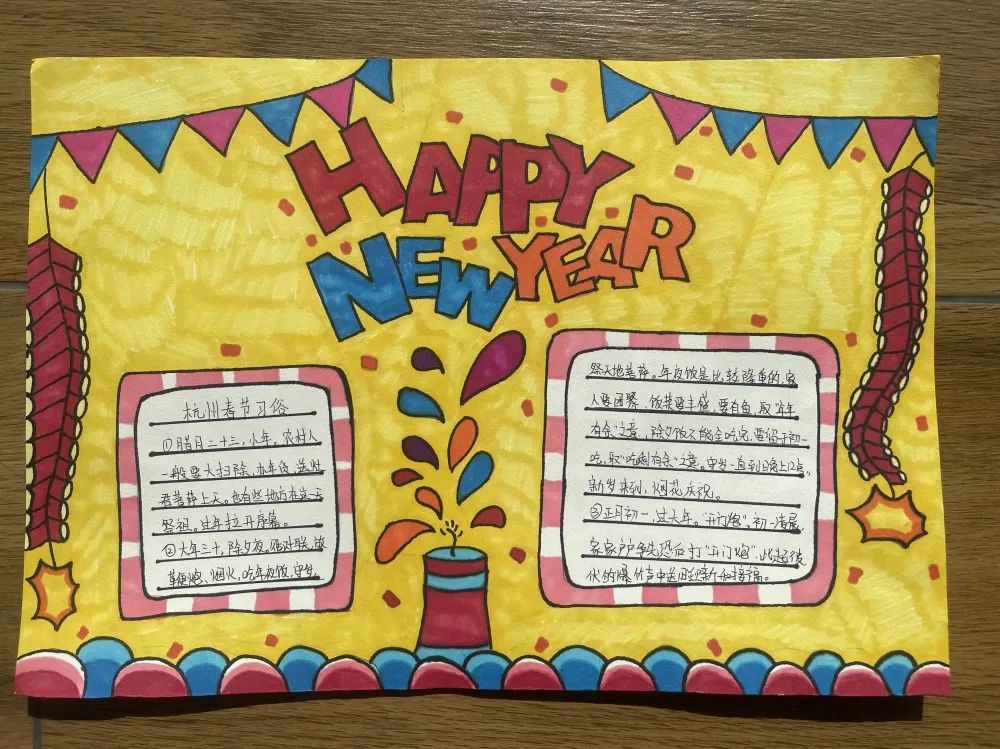 HAPPY
NEW YEAR
杭州春节习俗
①腊月二十三,小年。农村人
一般要大扫除,办年货,送灶
君菩萨上天。也有些地方在这一天
祭祖。过年拉开序幕。
②大年三十,除夕夜。贴对联,放
鞭炮、烟火,吃年夜饭,守岁,
祭天地菩萨。年夜饭是比较隆重的,家
人要团聚,饭菜要丰盛,要有鱼,取“年年
有余”之意,除夕饭不能全吃完,要留于初一
吃,取“吃剩有余”之意。守岁一直到晚上12点。
新岁来到,烟花庆祝。
③正月初一,过大年。“开门炮”,初一清晨
家家户户争先恐后打“开门炮”,此起彼
伏的爆竹声中送旧迎新和接福。